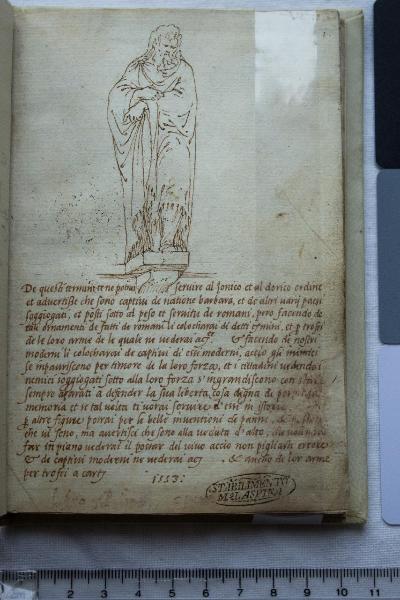 De questi termini te ne potrai servire al Jonico et al dorico ordine
et advertisse che sono captivi de natione barbara, et de altri varij paesi
soggiogati, et posti sotto al peso et servitu de romani, pero facendo de
tali ornamenti de fatti de romani li colocharai di detti termini, et p trofei
de le loro arme de le quale ne vederai ac & facendo de nostri
moderni li colocharai de captivi di essi moderni, accio gli inimici
se impauriscono per timore de la loro forza, et i cittadini vedendo i
nemici soggiogati sotto alla loro forza s'ingrandiscono con
sempre aparati a defender la sua liberta, cosa digna de
memoria et se tal volta ti vorai servire d'essi in
p altre figure potrai per le belle inventioni de panni,
che vi sono, ma avertisci che sono alla veduta d'alto,
far in piano vederai il posar del vivo accio non pigliassi errore
& de captivi moderni ne vederai ac & ancho de lor arme
per trofei a carte
1553:
STABILIMENTO
MALASPINA
1 2 3 4 5 6 7 8 9 10 11